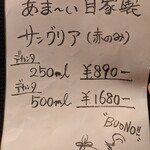 あま〜い自家製
サングリア(赤のみ)
デカンタ
250ml ¥890-
デカンタ
500ml ¥1680-
"BUONO!!"